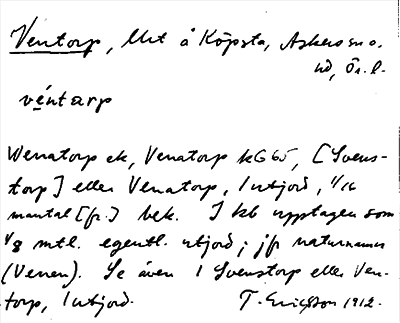 Ventorp, lht å Köpsta, Askers sn o.
hd, Ör. l.
véntarp
Wenatorp ek, Venatorp kG65, [Svens-
torp] eller Venatorp, 1 utjord, 1/16
mantal [fr.] bek. I kb upptagen som
1/8 mtl. egentl. utjord; jfr naturnamn
(Venen). Se även 1 Svenstorp eller Ven-
torp, 1 utjord. T. Ericsson 1912.